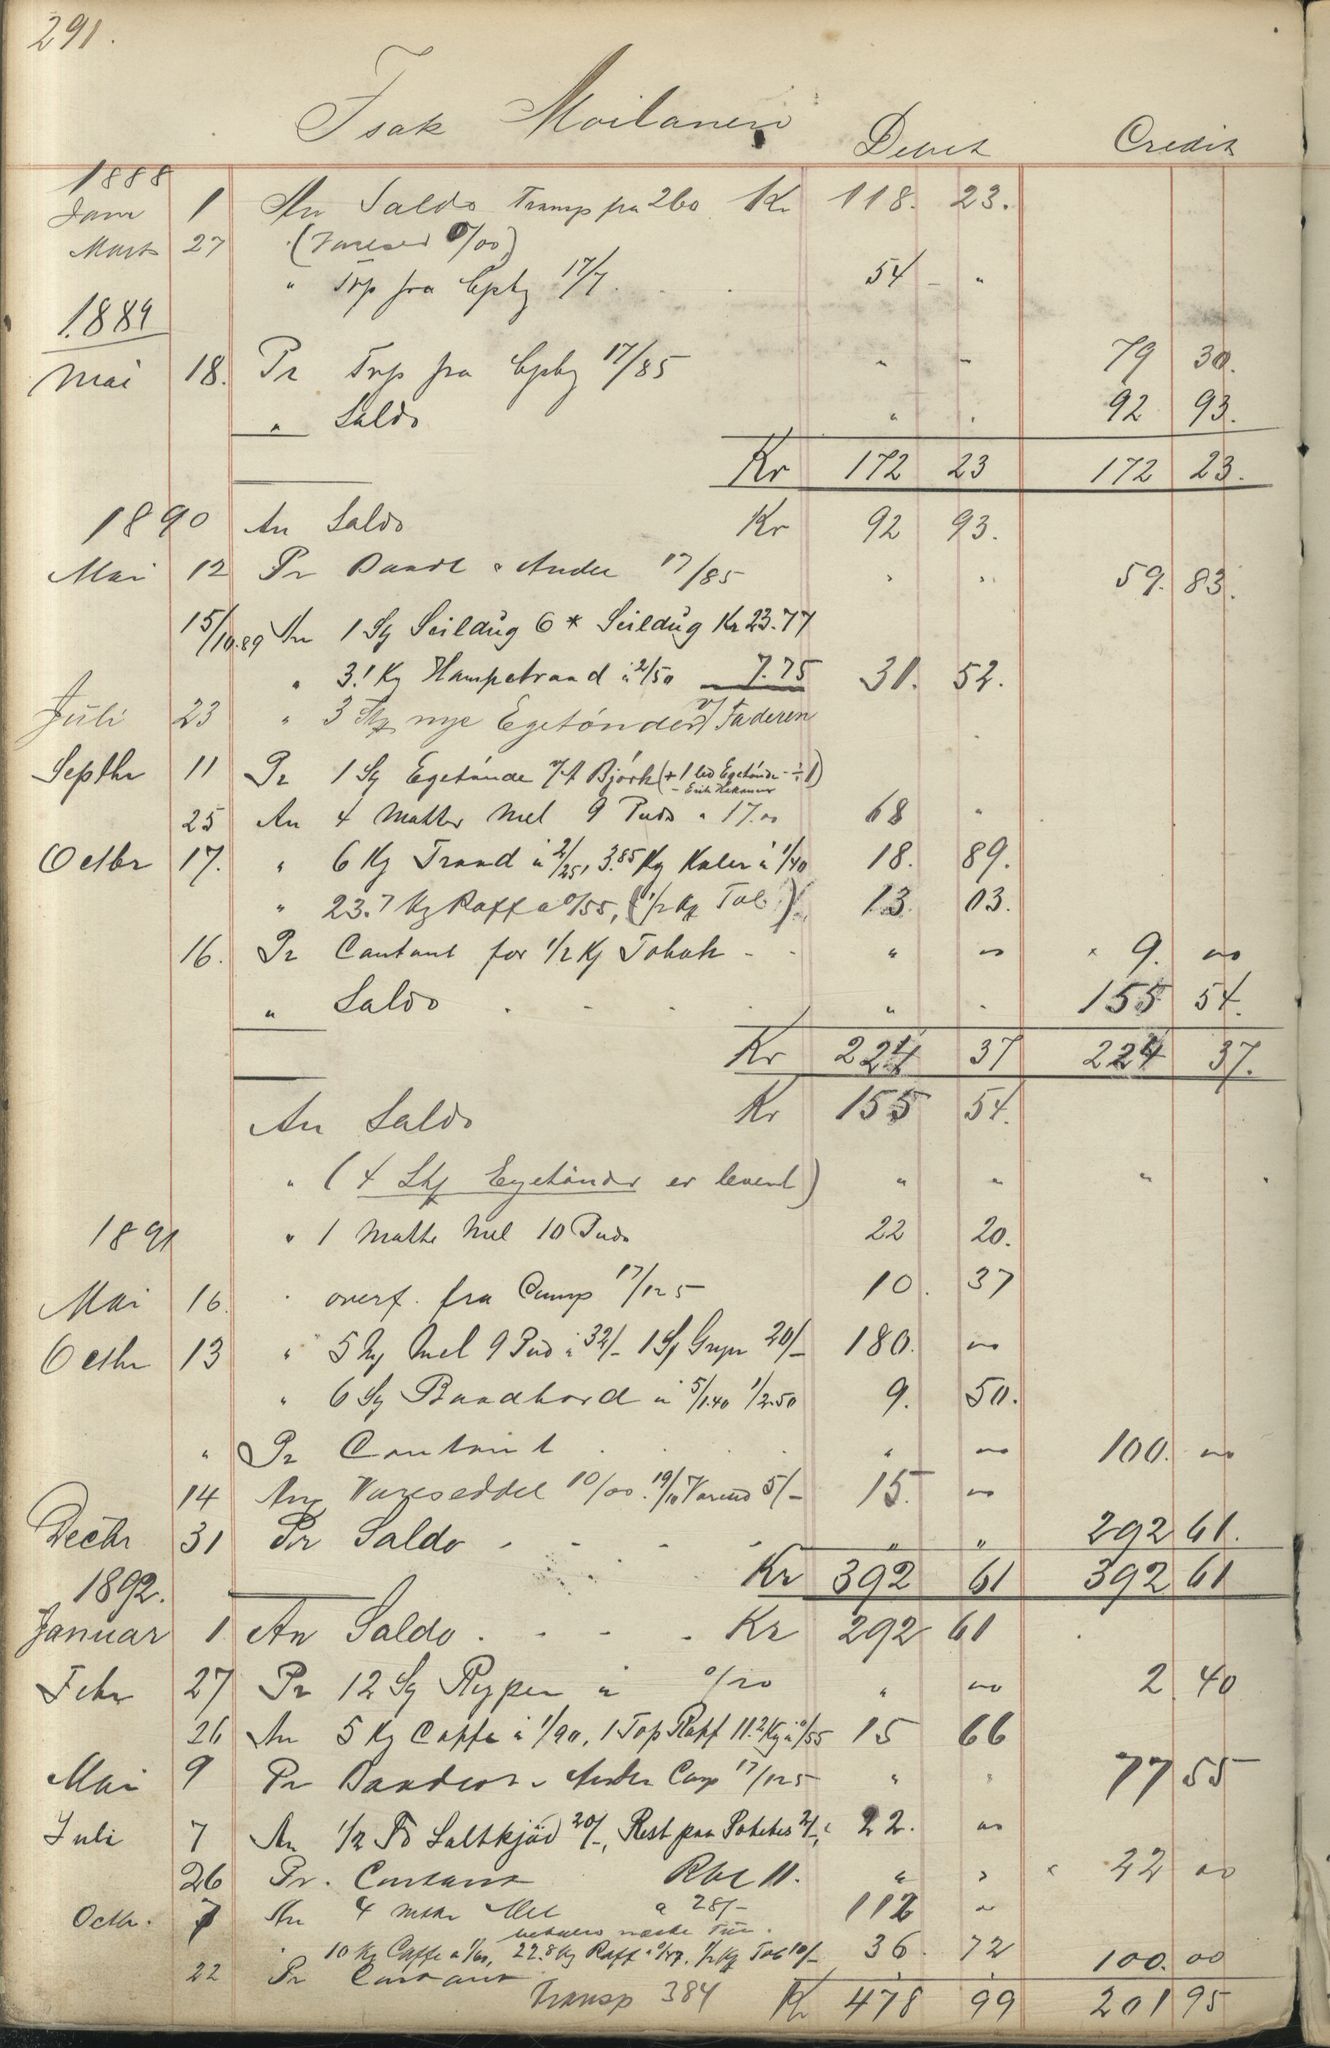 291.
Isak Moilanen Debet Credit
1888
Janr 1 An Saldo Transp fra 260 Kr 118. 23.
Marts 27 (Vareseddel 0/00)
" Trp fra Cpbg 17/7 . . 54 - "
1889
Mai 18. Pr Trp fra Cpbg 17/85 " - 79 30.
" Saldo " . 92 93.
Kr 172 23 172 23.
1890 An Saldo Kr 92 93.
Mai 12 Pr 17/85 " " 59. 83.
15/10.89 An 1 Sg Seildug 6 * Seildug Kr 23.77
" 3.1 Kg Hampetraad à 2/50 7.75 31. 52.
Juli 23 " 3 Stk nye Egetönder v/ Faderen
Septbr 11 Pr 1 Sg Egetönde Björk (+ 1 Egetönde ÷ 1)
25 An 4 Matter Mel 9 Puds à 17.00 68 "
Octbr 17. " 6 Kg Traad à 2/25, 3.85 Kg à 1/40 18. 89.
" 23.7 Kg Raff à 0/55, (1/2 Kg Tob) 13. 03.
16. Pr Contant for 1/2 Kg Tobak - - " 00 × 9. 00
" Saldo . - - - " - 155 54.
Kr 224 37 224 37.
An Saldo Kr 155 54.
" (4 Stk Egetönder er levert) " " "
1891 " 1 Matte Mel 10 Puds 22 20.
Mai 16. " overf. fra Comp 17/125 10. 37
Octbr 13 " 5 Mel 9 Pud à 32/- 1 Sg Gryn 20/- 180. 00
" 6 Sg Baadbord à 5/1.40 1/2.50 9. 50.
" Pr Contant . . . " 00 100. 00
14 An Vareseddel 10/00. 5/- 15. 00
Decbr 31 Pr Saldo - - - - " " 292 61.
1892. Kr 392 61 392 61
Januar 1. An Saldo . - - - Kr 292 61
Febr 27 Pr 12 Sg Ryper à 0/20 " 00 2. 40
26 An 5 Kg Caffe à 1/90, 1 Top Raff 11.2 Kg à 0/55 15 66
Mai 9 Pr 17/125 " " 77 55
Juli 7 An 1/2 Saltkjöd 20/-, Rest paa Potetes 2/-, 22. 00
26 Pr. Contant 11. " " × 22 00
Octbr. 7 An 4 Mel à 28/- 112 "
betales næste
" 10 Kg Caffe à 22.8 Kg Raff 1/2 Kg Tob 10/- 36. 72
22 Pr Contant 100. 00
Transp 384 Kr 478 99 201 95